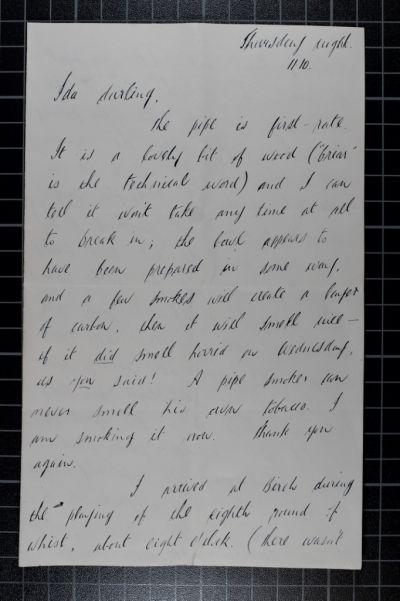 Thursday night.
11.10.
Ida darling,
The pipe is first-rate.
It is a lovely bit of wood ('briar'
is the technical word) and I can
tell it won't take any time at all
to break in; the bowl appears to
have been prepared in some way,
and a few smokes will create a layer
of carbon, then it will smell nice —
if it did smell horrid on Wednesday,
as you said! A pipe smoker can
never smell his own tobacco. I
am smoking it now. Thank you
again.
I arrived at Birch during
the playing of the eighth round of
whist, about eight o'clock. (There wasn't